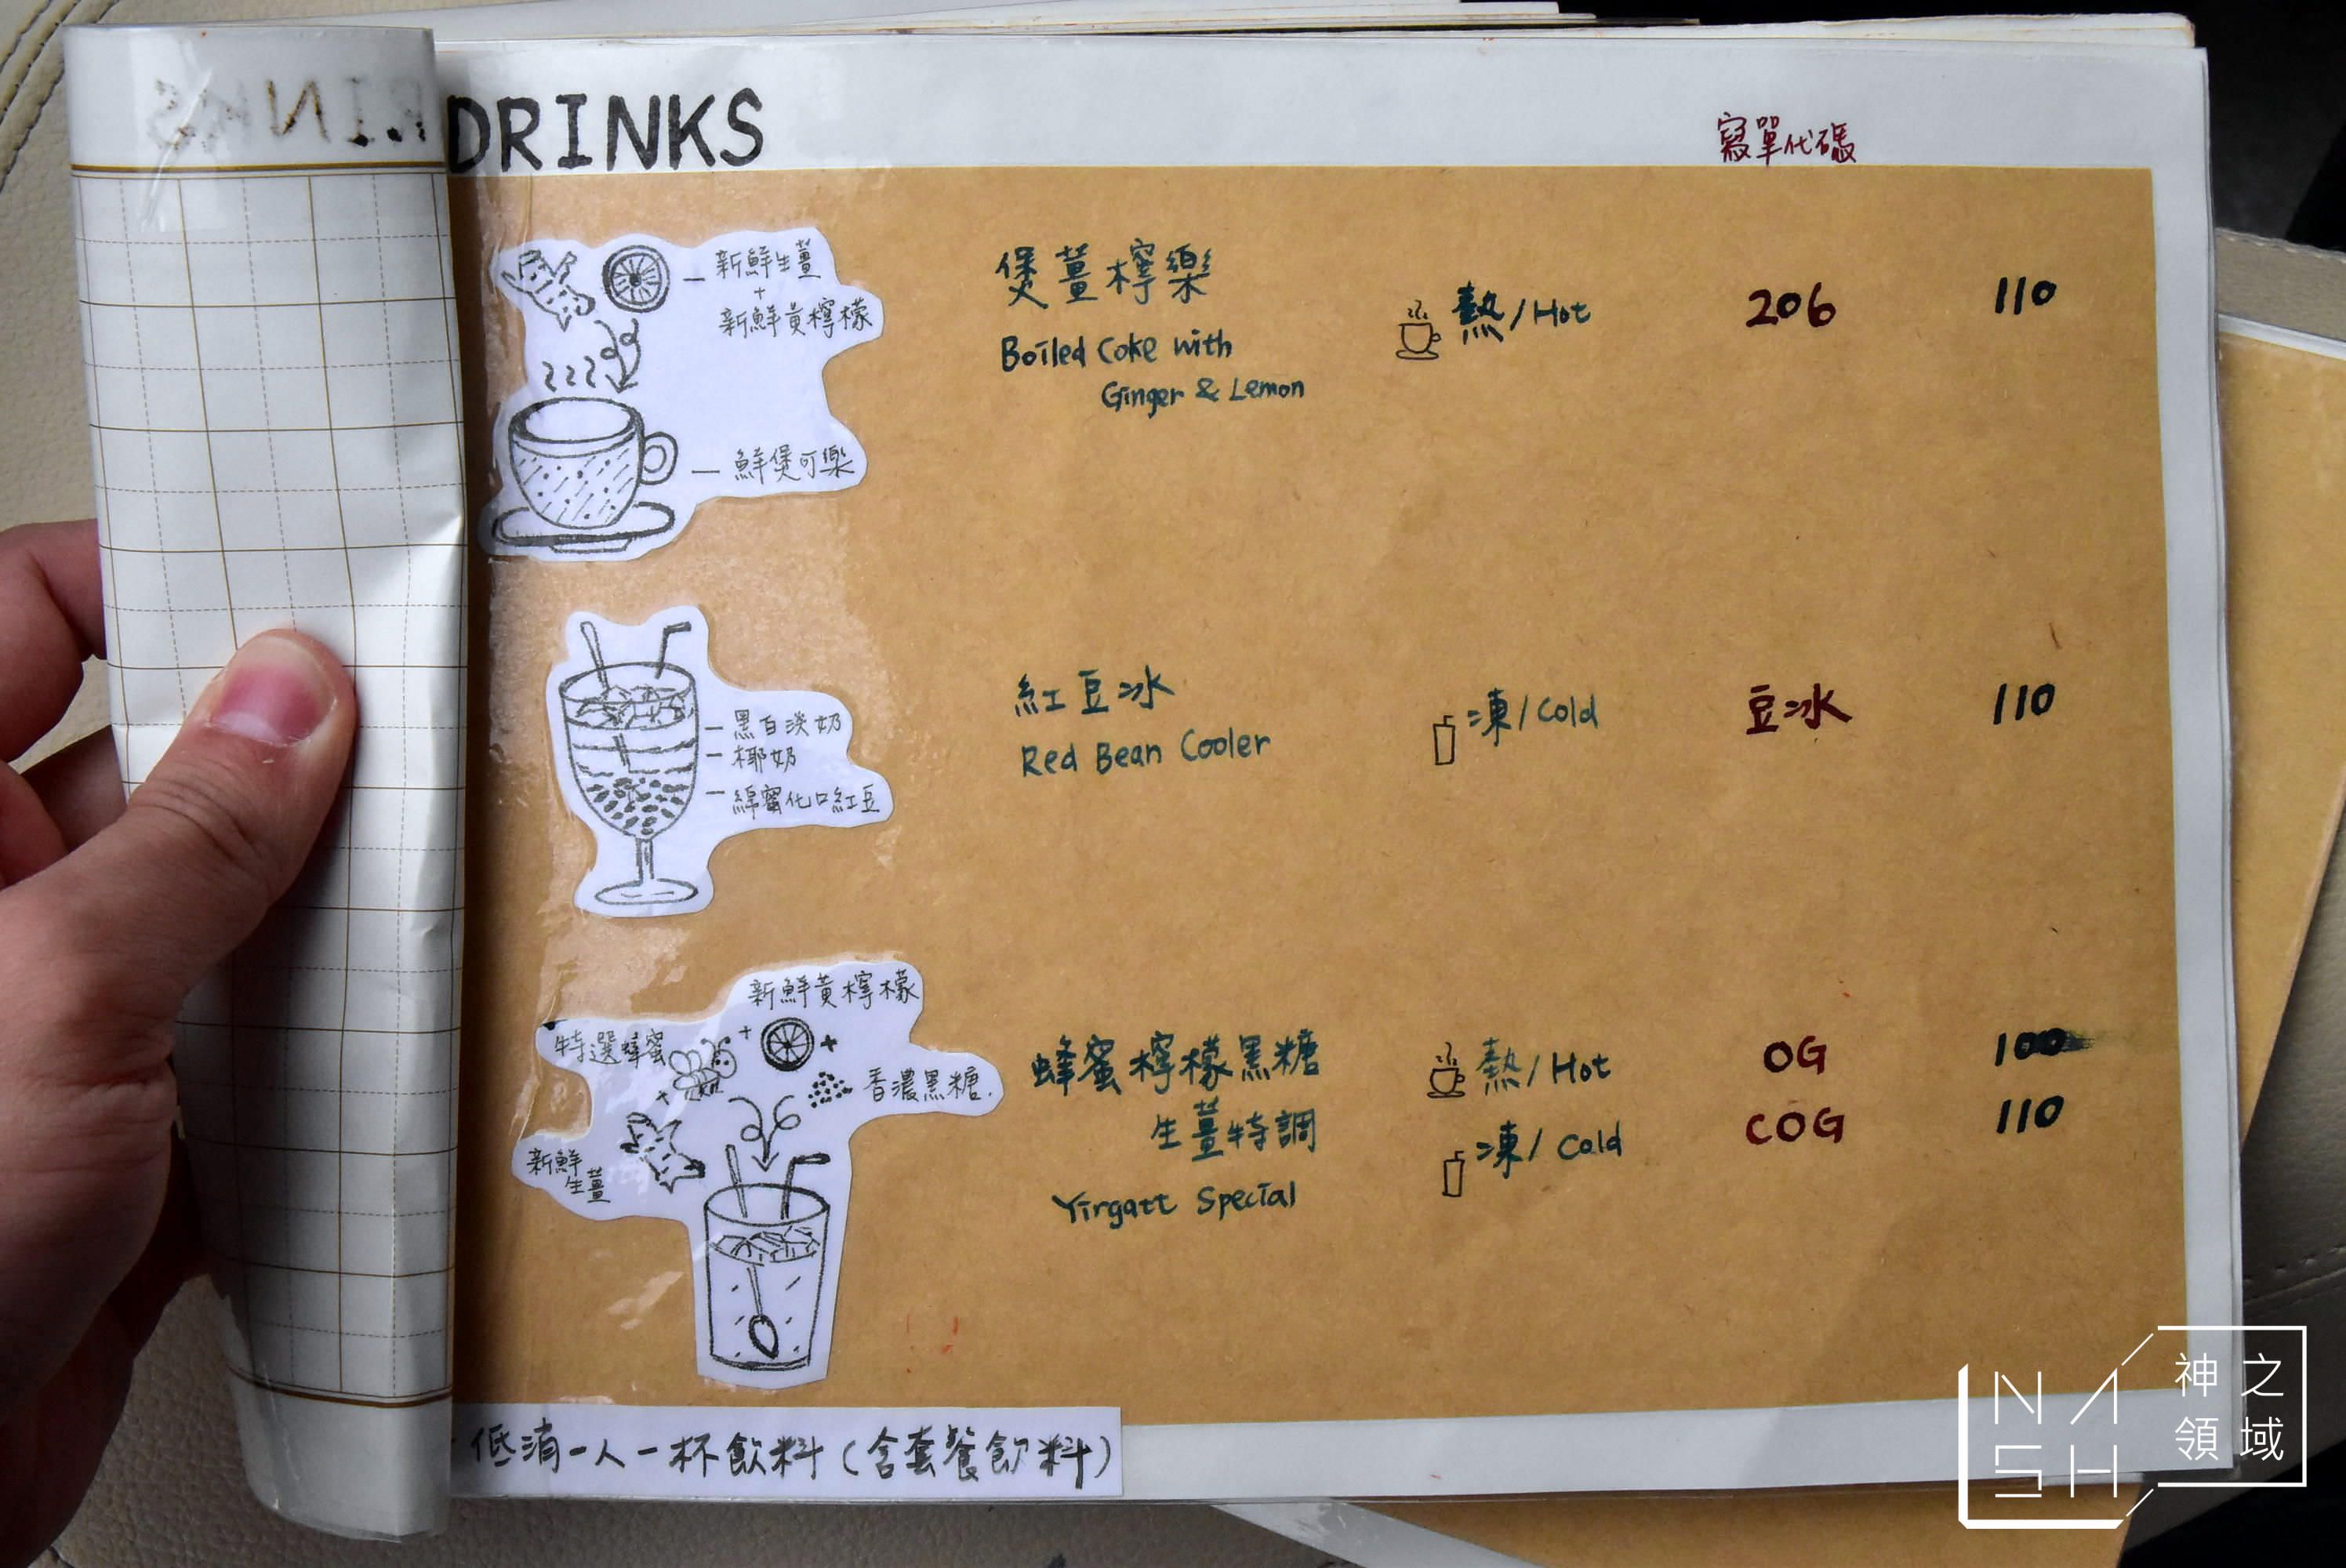 DRINKS
寫單代碼
新鮮生薑
+
新鮮黃檸檬
鮮煲可樂
煲薑檸樂
Boiled Coke with
Ginger & Lemon
熱/Hot
206
110
黑白淡奶
椰奶
綿蜜化口紅豆
紅豆冰
Red Bean Cooler
凍/Cold
豆冰
110
新鮮黃檸檬
特選蜂蜜
+
+
+
香濃黑糖.
新鮮
生薑
蜂蜜檸檬黑糖
生薑特調
Yirgatt Special
熱/Hot
OG
100
凍/Cold
COG
110
低消一人一杯飲料(含套餐飲料)
NASH
神之
領域